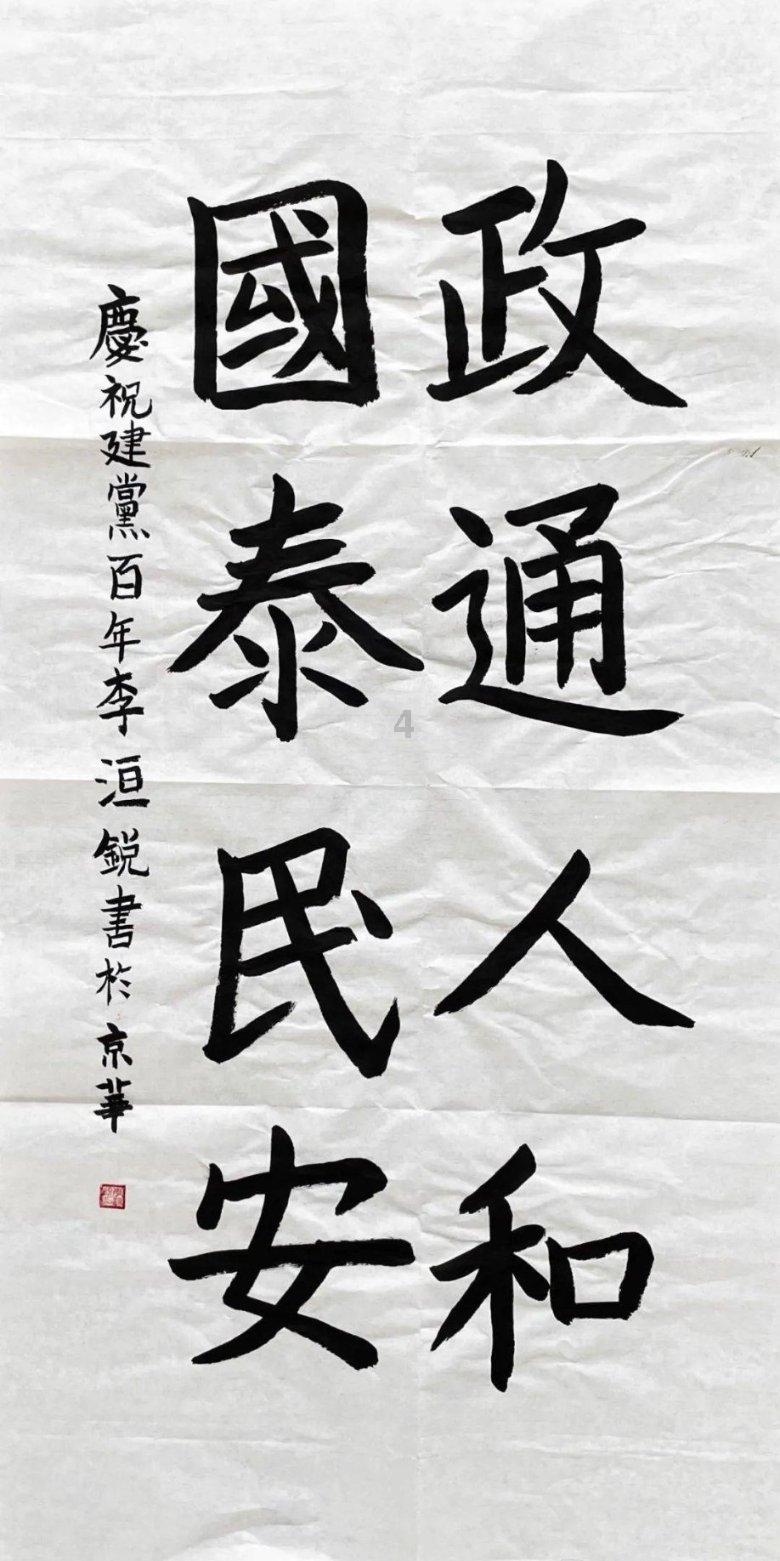 政通人和
國泰民安
慶祝建黨百年李洹銳書於京華
4